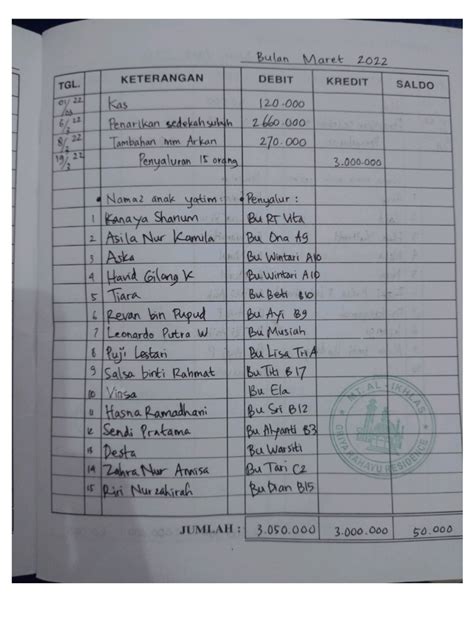 Bulan Maret 2022
TGL. KETERANGAN DEBIT KREDIT SALDO
01/03 22 Kas 120.000
6/3 22 Penarikan sedekah subuh 2.660.000
8/3 22 Tambahan mm Arkan 270.000
19/3 22 Penyaluran 15 orang 3.000.000
• Nama2 anak yatim • Penyalur :
1 Kanaya Shanum Bu RT Vita
2 Asila Nur Kamila Bu Ona A9
3 Aska Bu Wintari A10
4 Havid Gilang K Bu Wintari A10
5 Tiara Bu Beti B10
6 Revan bin Pupud Bu Ayi B9
7 Leonardo Putra W Bu Musiah
8 Puji Lestari Bu Lisa Tri A
9 Salsa binti Rahmat Bu Titi B17
10 Vinsa Bu Ela
11 Hasna Ramadhani Bu Sri B12
12 Sendi Pratama Bu Alyanti B3
13 Desta Bu Warsiti
14 Zahra Nur Annisa Bu Tari C2
15 Riri Nurzahirah Bu Dian B15
MT. AL - IKHLAS
GRIYA RAHAYU RESIDENCE
JUMLAH : 3.050.000 3.000.000 50.000